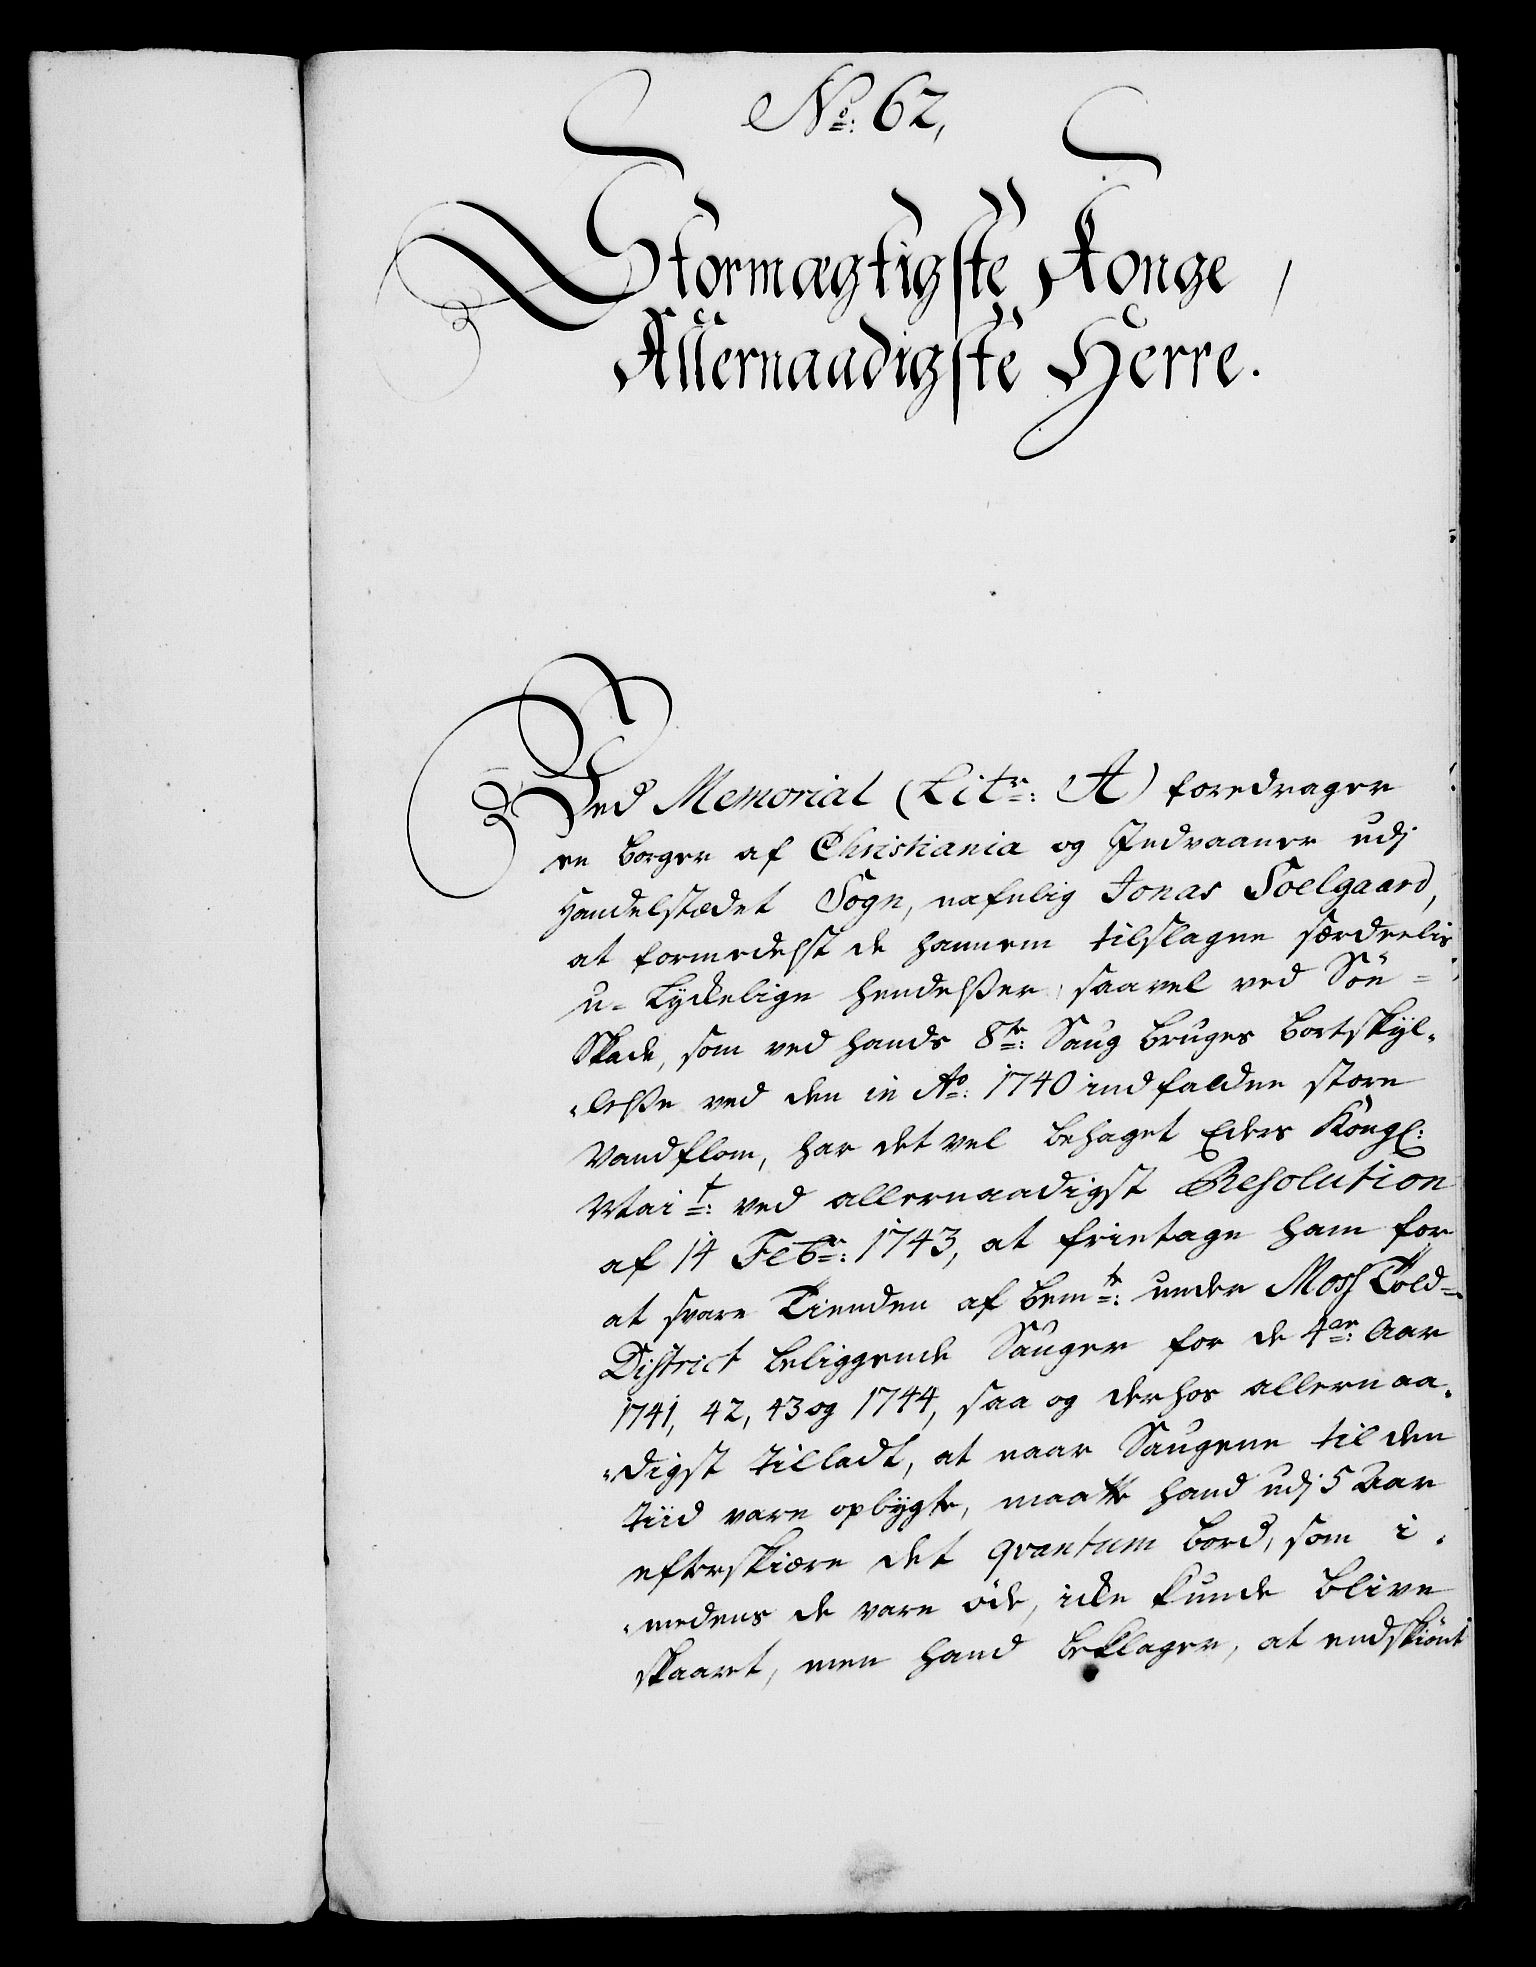 No: 62,
Stormægtigste Konge,
Allernaadigste Herre.
Ved Memorial (Litr: A) foredrager
en borger af Christiania og Indvaaner udj
Handelstædet Sogn, nafnlig Jonas Soelgaard,
at formedelst de hannem tilslagne særdeelis
u-lyckelige hendelßer, saavel ved Söe=
Skade, som ved hands 8te: Saug bruges bortskyl-
-lelße ved den in Ao: 1740 indfaldne store
Vandflom, har det vel behaget Eders Kongl:
Mait: ved allernaadigst Resolution
af 14 Febr: 1743, at frietage ham for
at svare Tienden af bemte: under Moss Told=
District beliggende Sauger for de 4re: Aar
1741, 42, 43 og 1744, saa og derhos allernaa-
-digst tilladt, at naar Saugene til den
tiid vare opbygte, maatte hand udj 5 Aar
efterskiære det qvantum bord, som i-
-medens de vare öde, icke kunde blive
skaaret, men hand beklager, at endskiönt